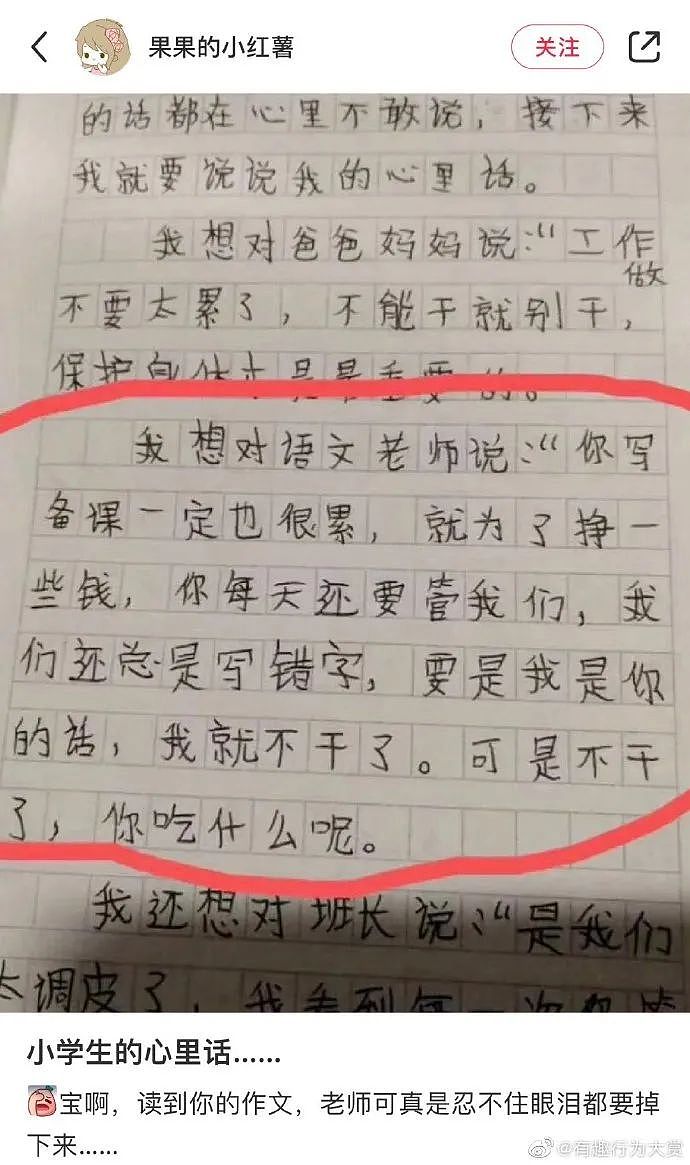 果果的小红薯
关注
的话都在心里不敢说，接下来
我就要说说我的心里话。
我想对爸爸妈妈说：“工作
做
不要太累了，不能干就别干，
保护身体才是最重要的。
我想对语文老师说：“你写
备课一定也很累，就为了挣一
些钱，你每天还要管我们，我
们还总是写错字，要是我是你
的话，我就不干了。可是不干
了，你吃什么呢。
我还想对班长说：“是我们
太调皮了，我看到每一次你
小学生的心里话……
宝啊，读到你的作文，老师可真是忍不住眼泪都要掉
下来……
@有趣行为大赏